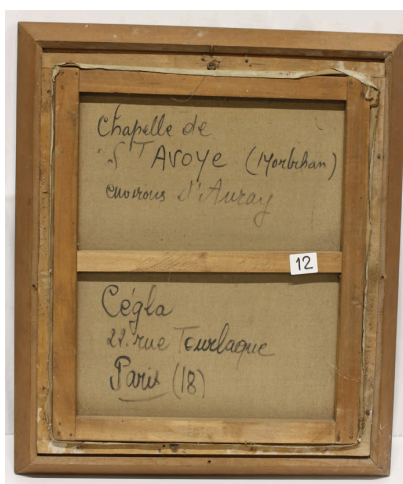 Chapelle de
St AVOYE (Morbihan)
environs d'Auray
12
Cégla
22. rue Tourlaque
Paris (18)